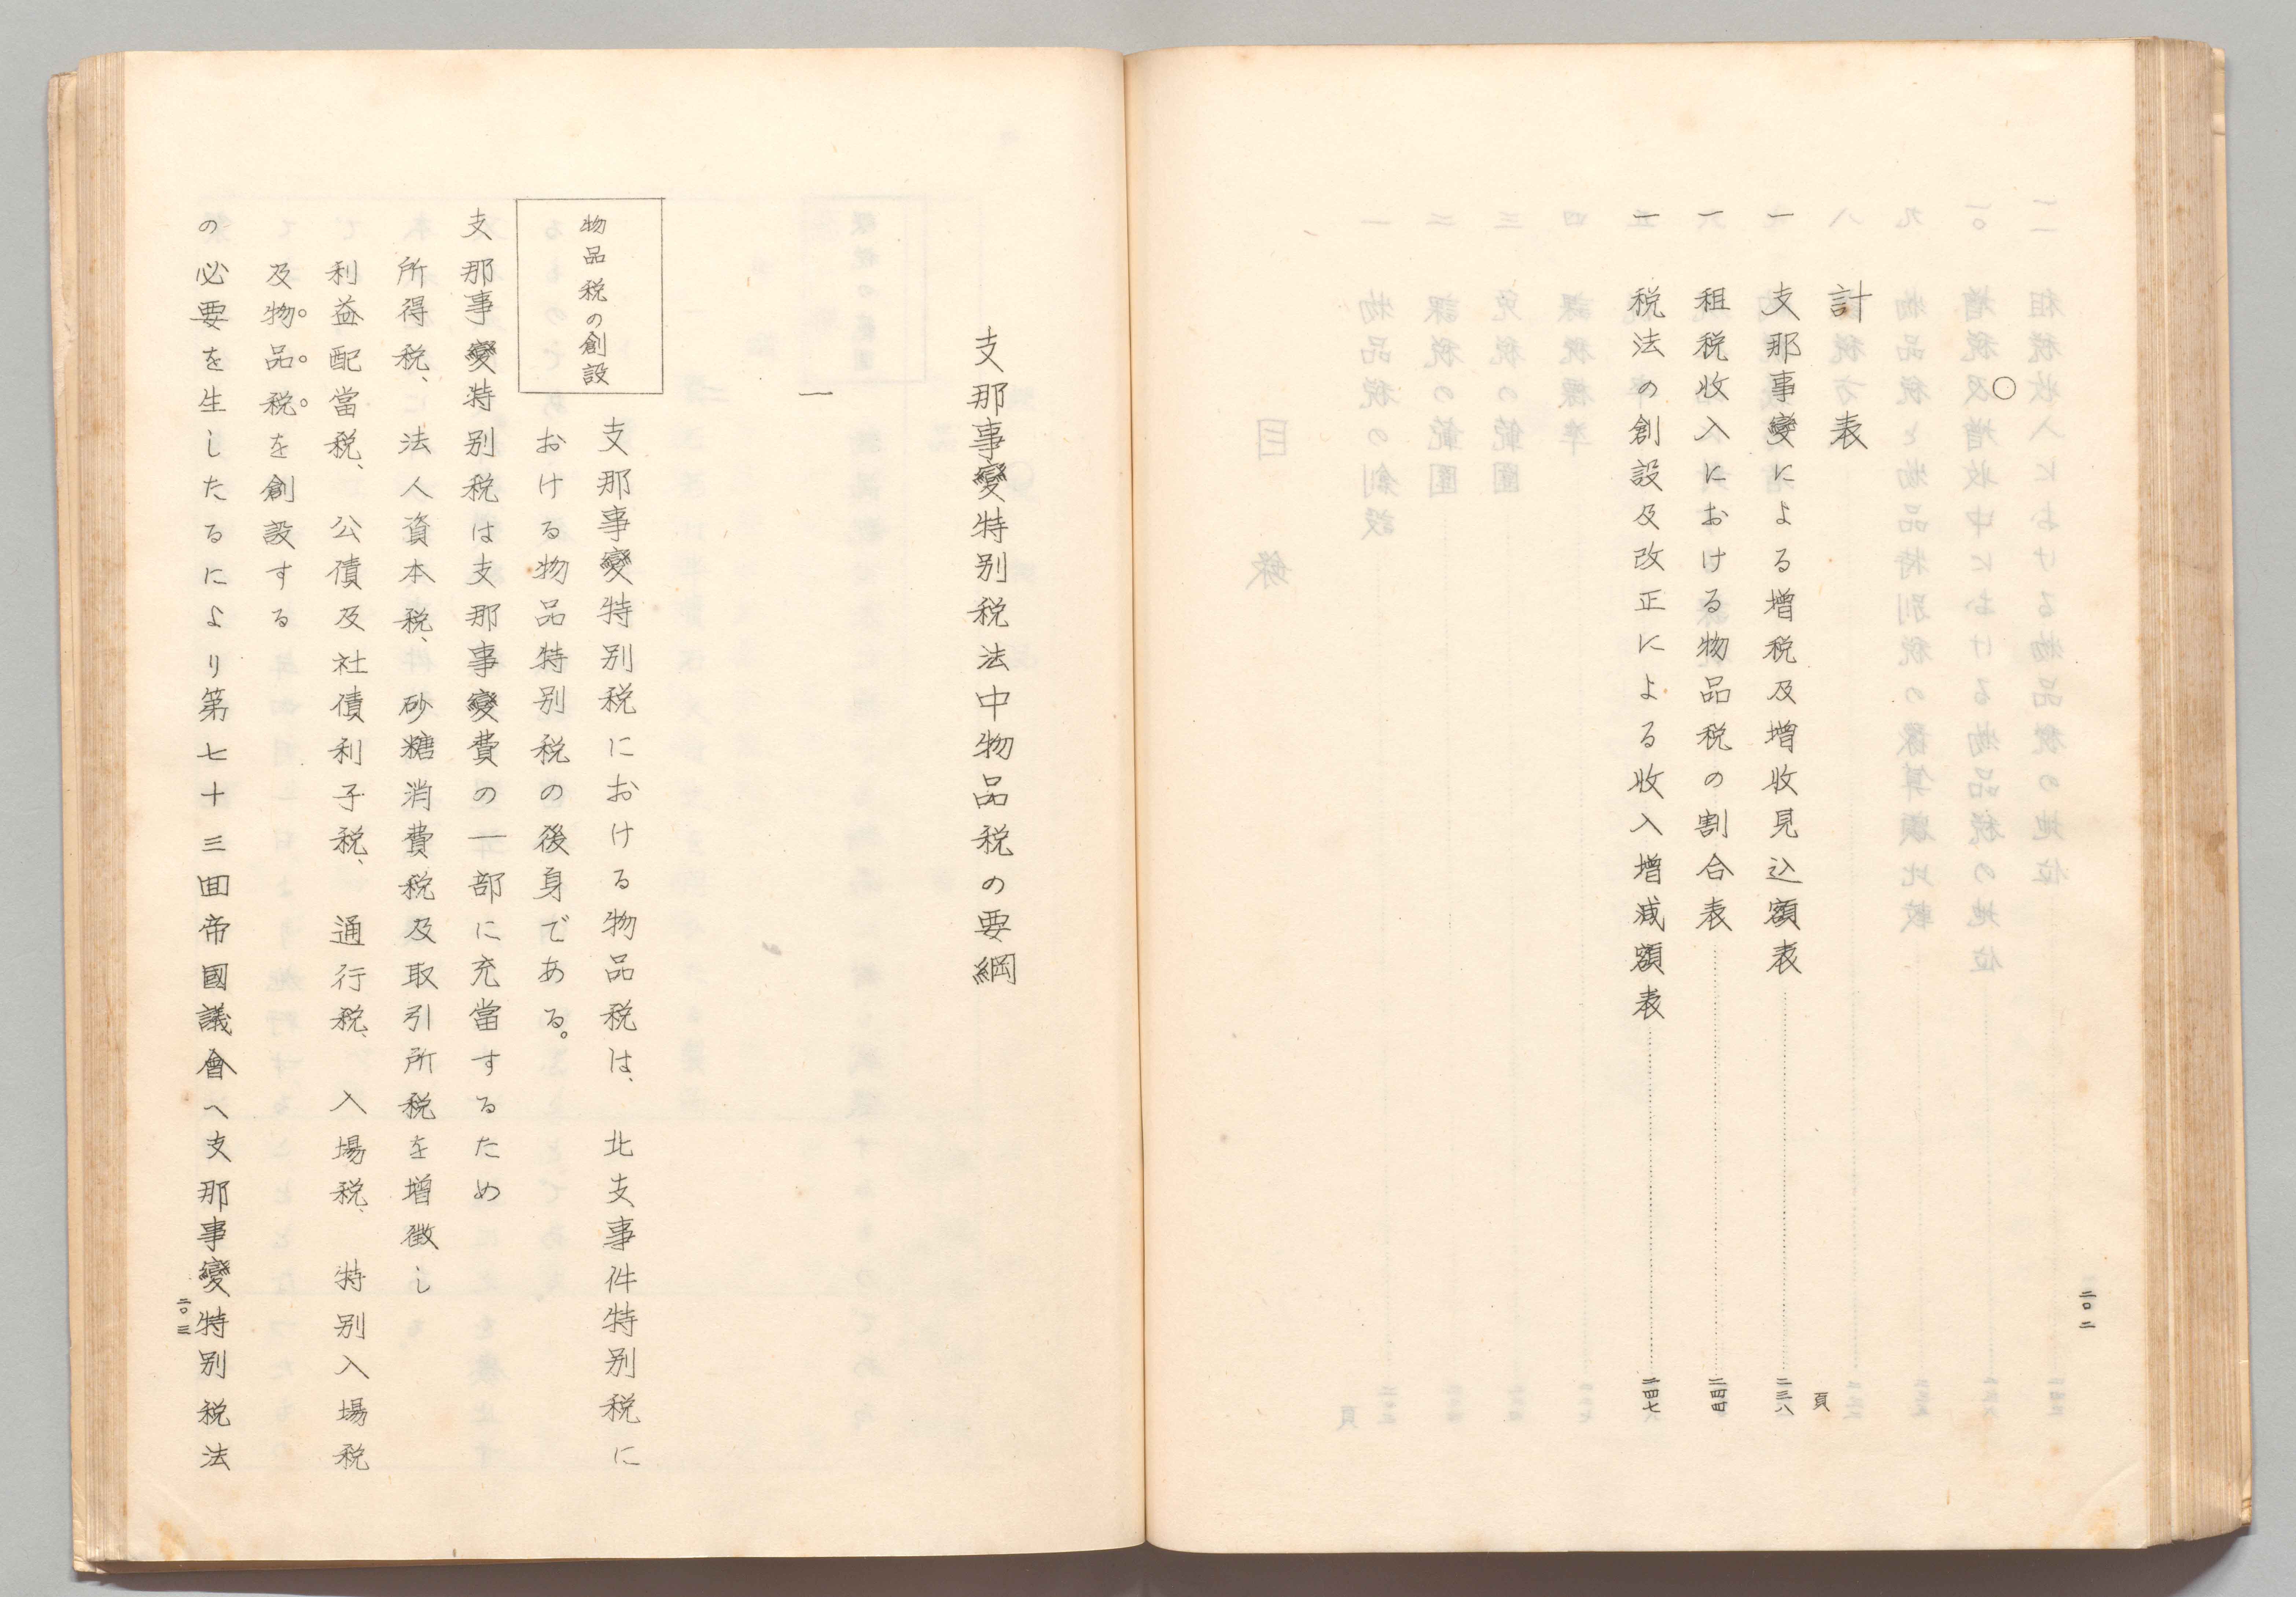 ○
計表
頁
一 支那事變による増税及増收見込額表 二三八
一 租税收入における物品税の割合表 二四四
一 税法の創設及改正による收入増減額表 二四七
二〇二
支那事變特別税法中物品税の要綱
一
物品税の創設
支那事變特別税における物品税は、北支事件特別税に
おける物品特別税の後身である。
支那事變特別税は支那事變費の一部に充當するため
所得税、法人資本税、砂糖消費税及取引所税を増徴し
利益配當税、公債及社債利子税、通行税、入場税、特別入場税
及物品税を創設する
の必要を生したるにより第七十三囬帝國議會へ支那事變特別税法
二〇三